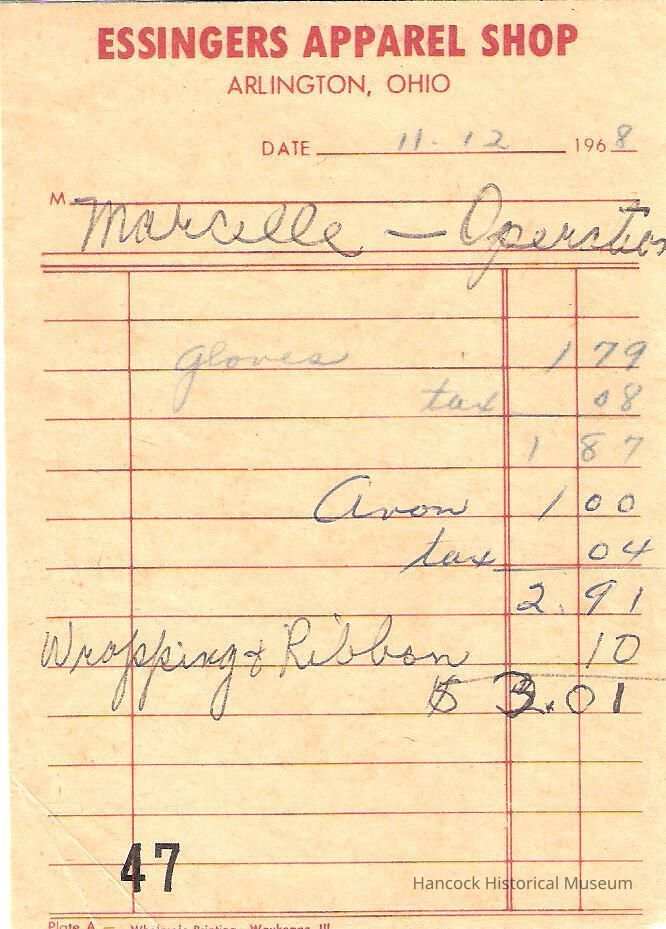 ESSINGERS APPAREL SHOP
ARLINGTON, OHIO
DATE 11-12 1968
M Marcelle — Operation
gloves 1 79
tax 08
1 87
Avon 1 00
tax 04
2.91
Wrapping & Ribbon 10
$ 3.01
47
Hancock Historical Museum
Plate A — Wholesale Printing, Waukegan, Ill.